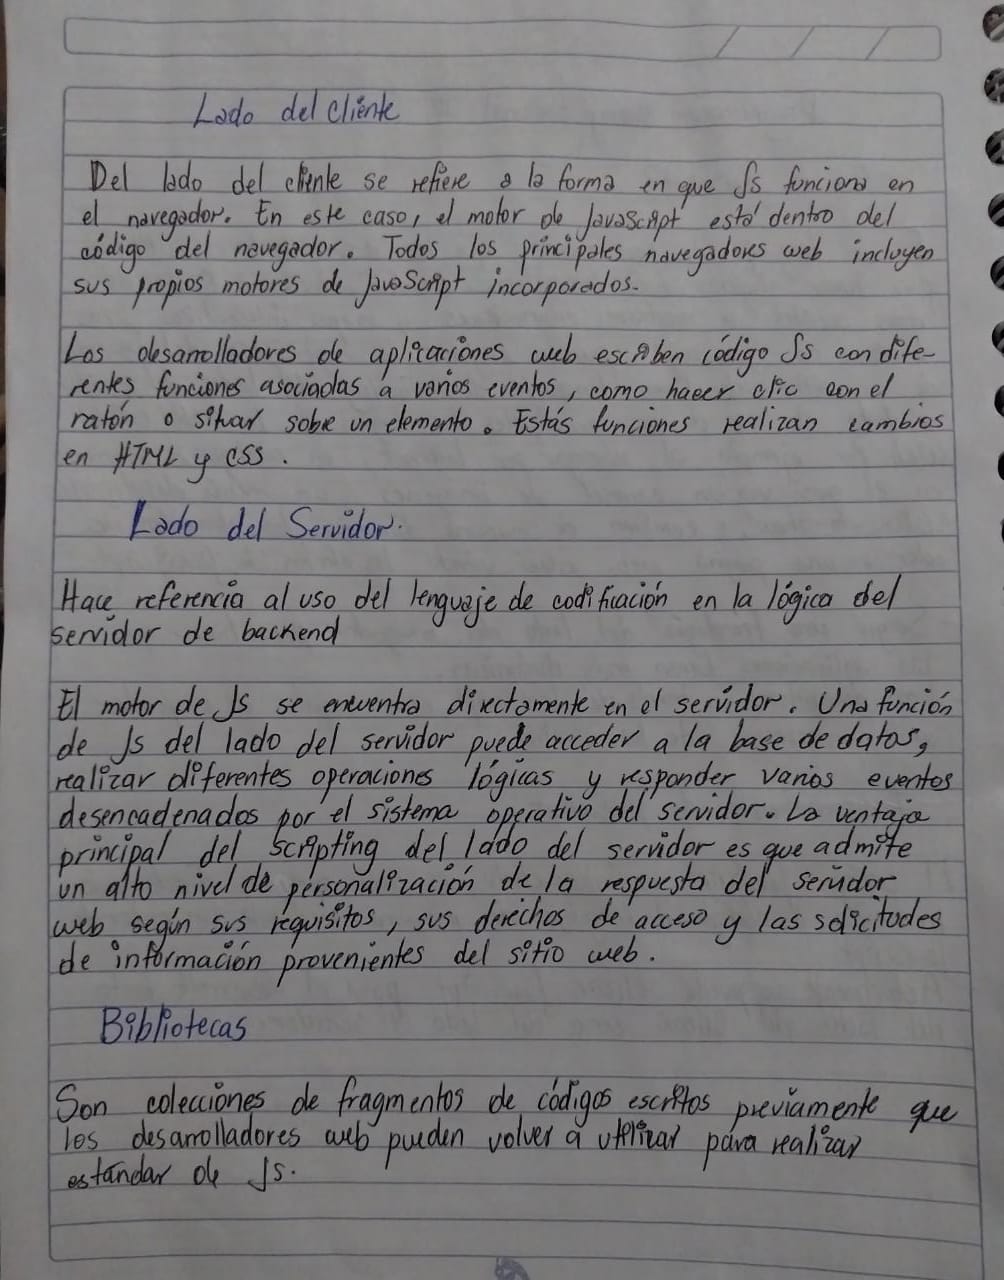 Lado del cliente
Del lado del cliente se refiere a la forma en que Js funciona en
el navegador. En este caso, el motor de JavaScript está dentro del
código del navegador. Todos los principales navegadores web incluyen
sus propios motores de JavaScript incorporados.
Los desarrolladores de aplicaciones web escriben código Js con dife-
rentes funciones asociadas a varios eventos, como hacer clic con el
ratón o situar sobre un elemento. Estás funciones realizan cambios
en HTML y CSS.
Lado del Servidor.
Hace referencia al uso del lenguaje de codificación en la lógica del
servidor de backend
El motor de Js se encuentra directamente en el servidor. Una función
de Js del lado del servidor puede acceder a la base de datos,
realizar diferentes operaciones lógicas y responder varios eventos
desencadenados por el sistema operativo del servidor. La ventaja
principal del scripting del lado del servidor es que admite
un alto nivel de personalización de la respuesta del servidor
web según sus requisitos, sus derechos de acceso y las solicitudes
de información provenientes del sitio web.
Bibliotecas
Son colecciones de fragmentos de códigos escritos previamente que
los desarrolladores web pueden volver a utilizar para realizar
estándar de Js.